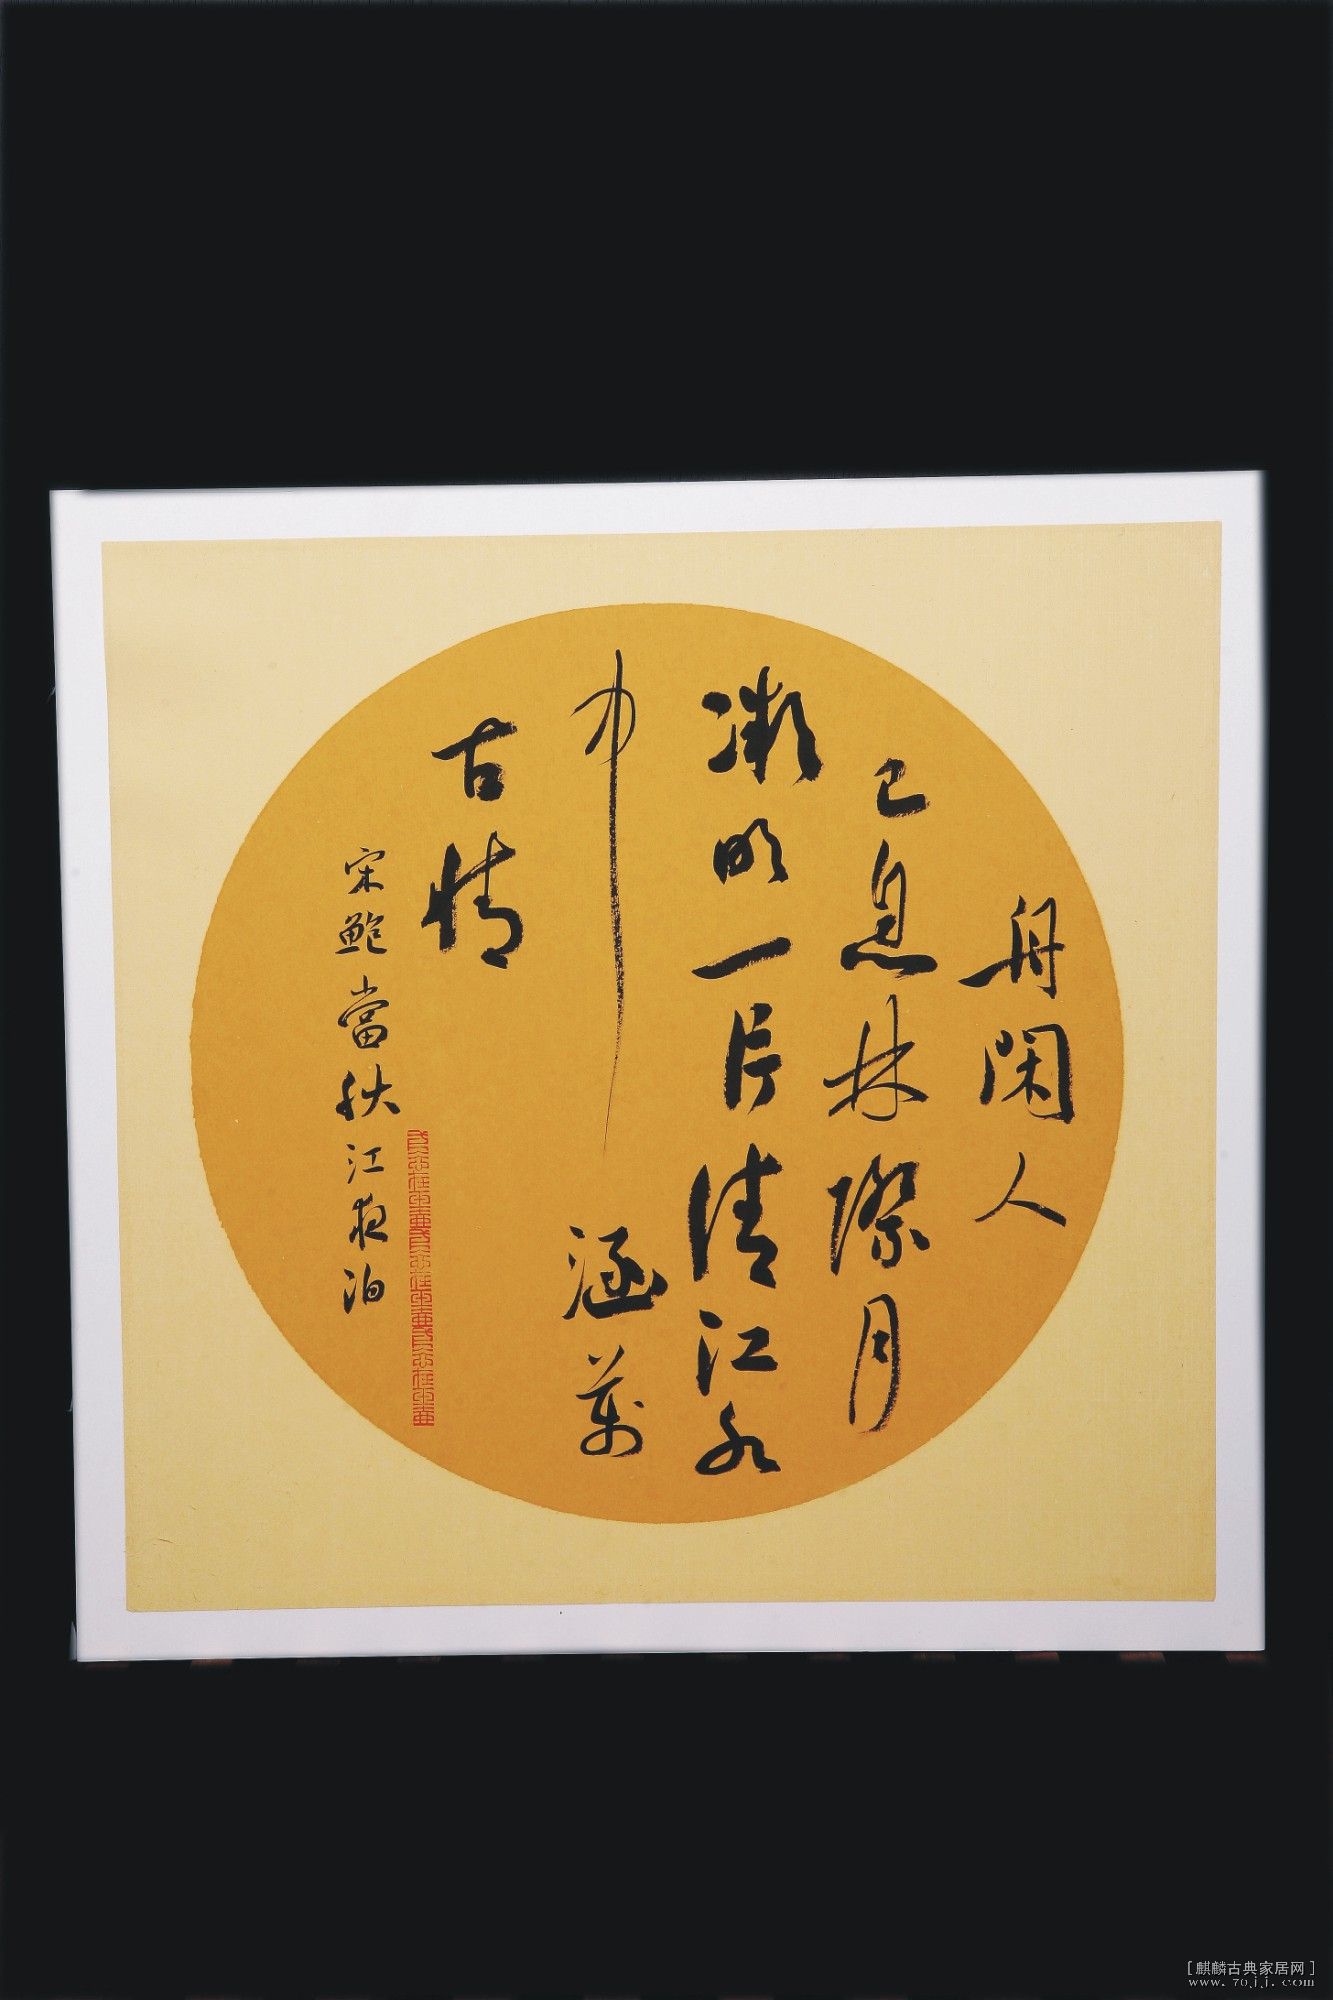 舟閑人
已息林際月
漸明一片清江水
中涵萬
古情
宋鮑當秋江夜泊
[麒麟古典家居网]
www.70jj.com